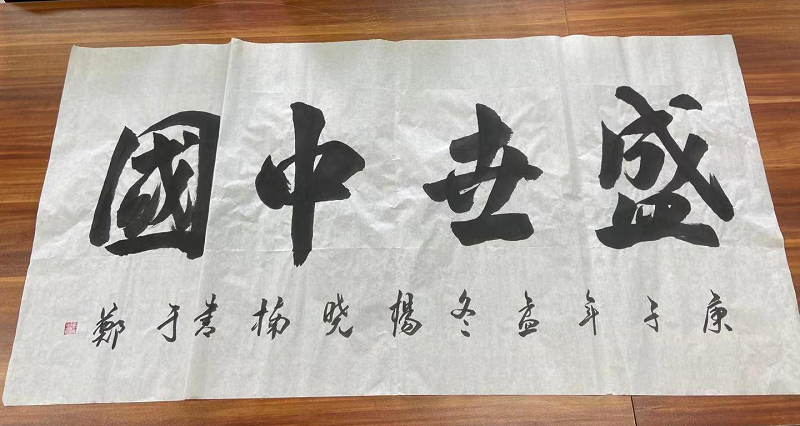 盛世中國
庚子年孟冬楊曉楠書于鄭